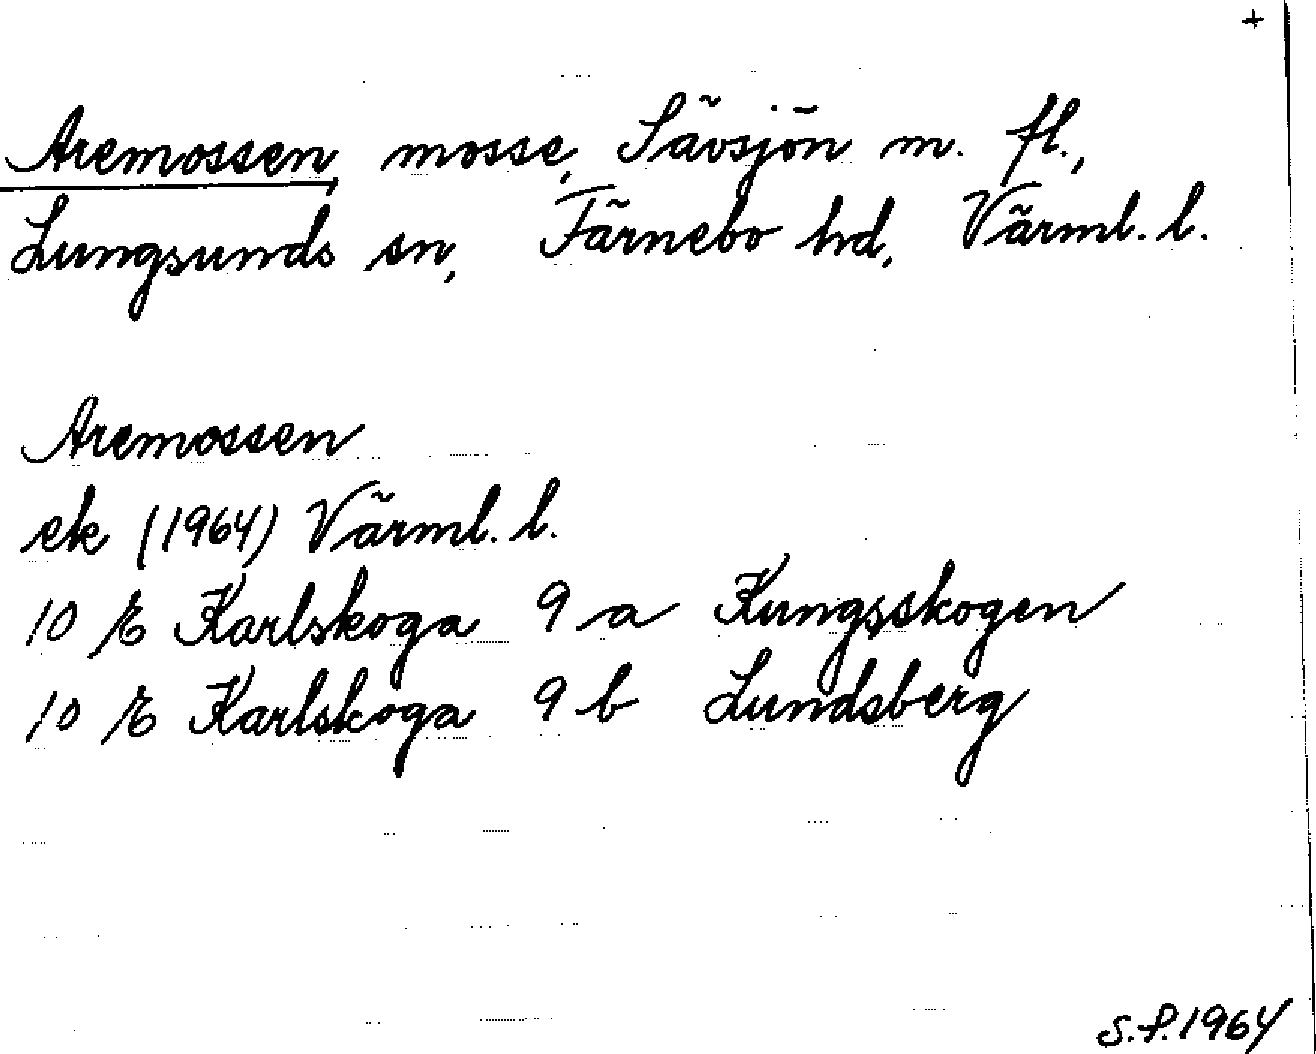 +
Aremossen, mosse, Sävsjön m. fl.,
Lungsunds sn, Färnebo hd, Värml. l.
Aremossen
ek (1964) Värml. l.
10 E Karlskoga 9 a Kungsskogen
10 E Karlskoga 9 b Lundsberg
S.P. 1964